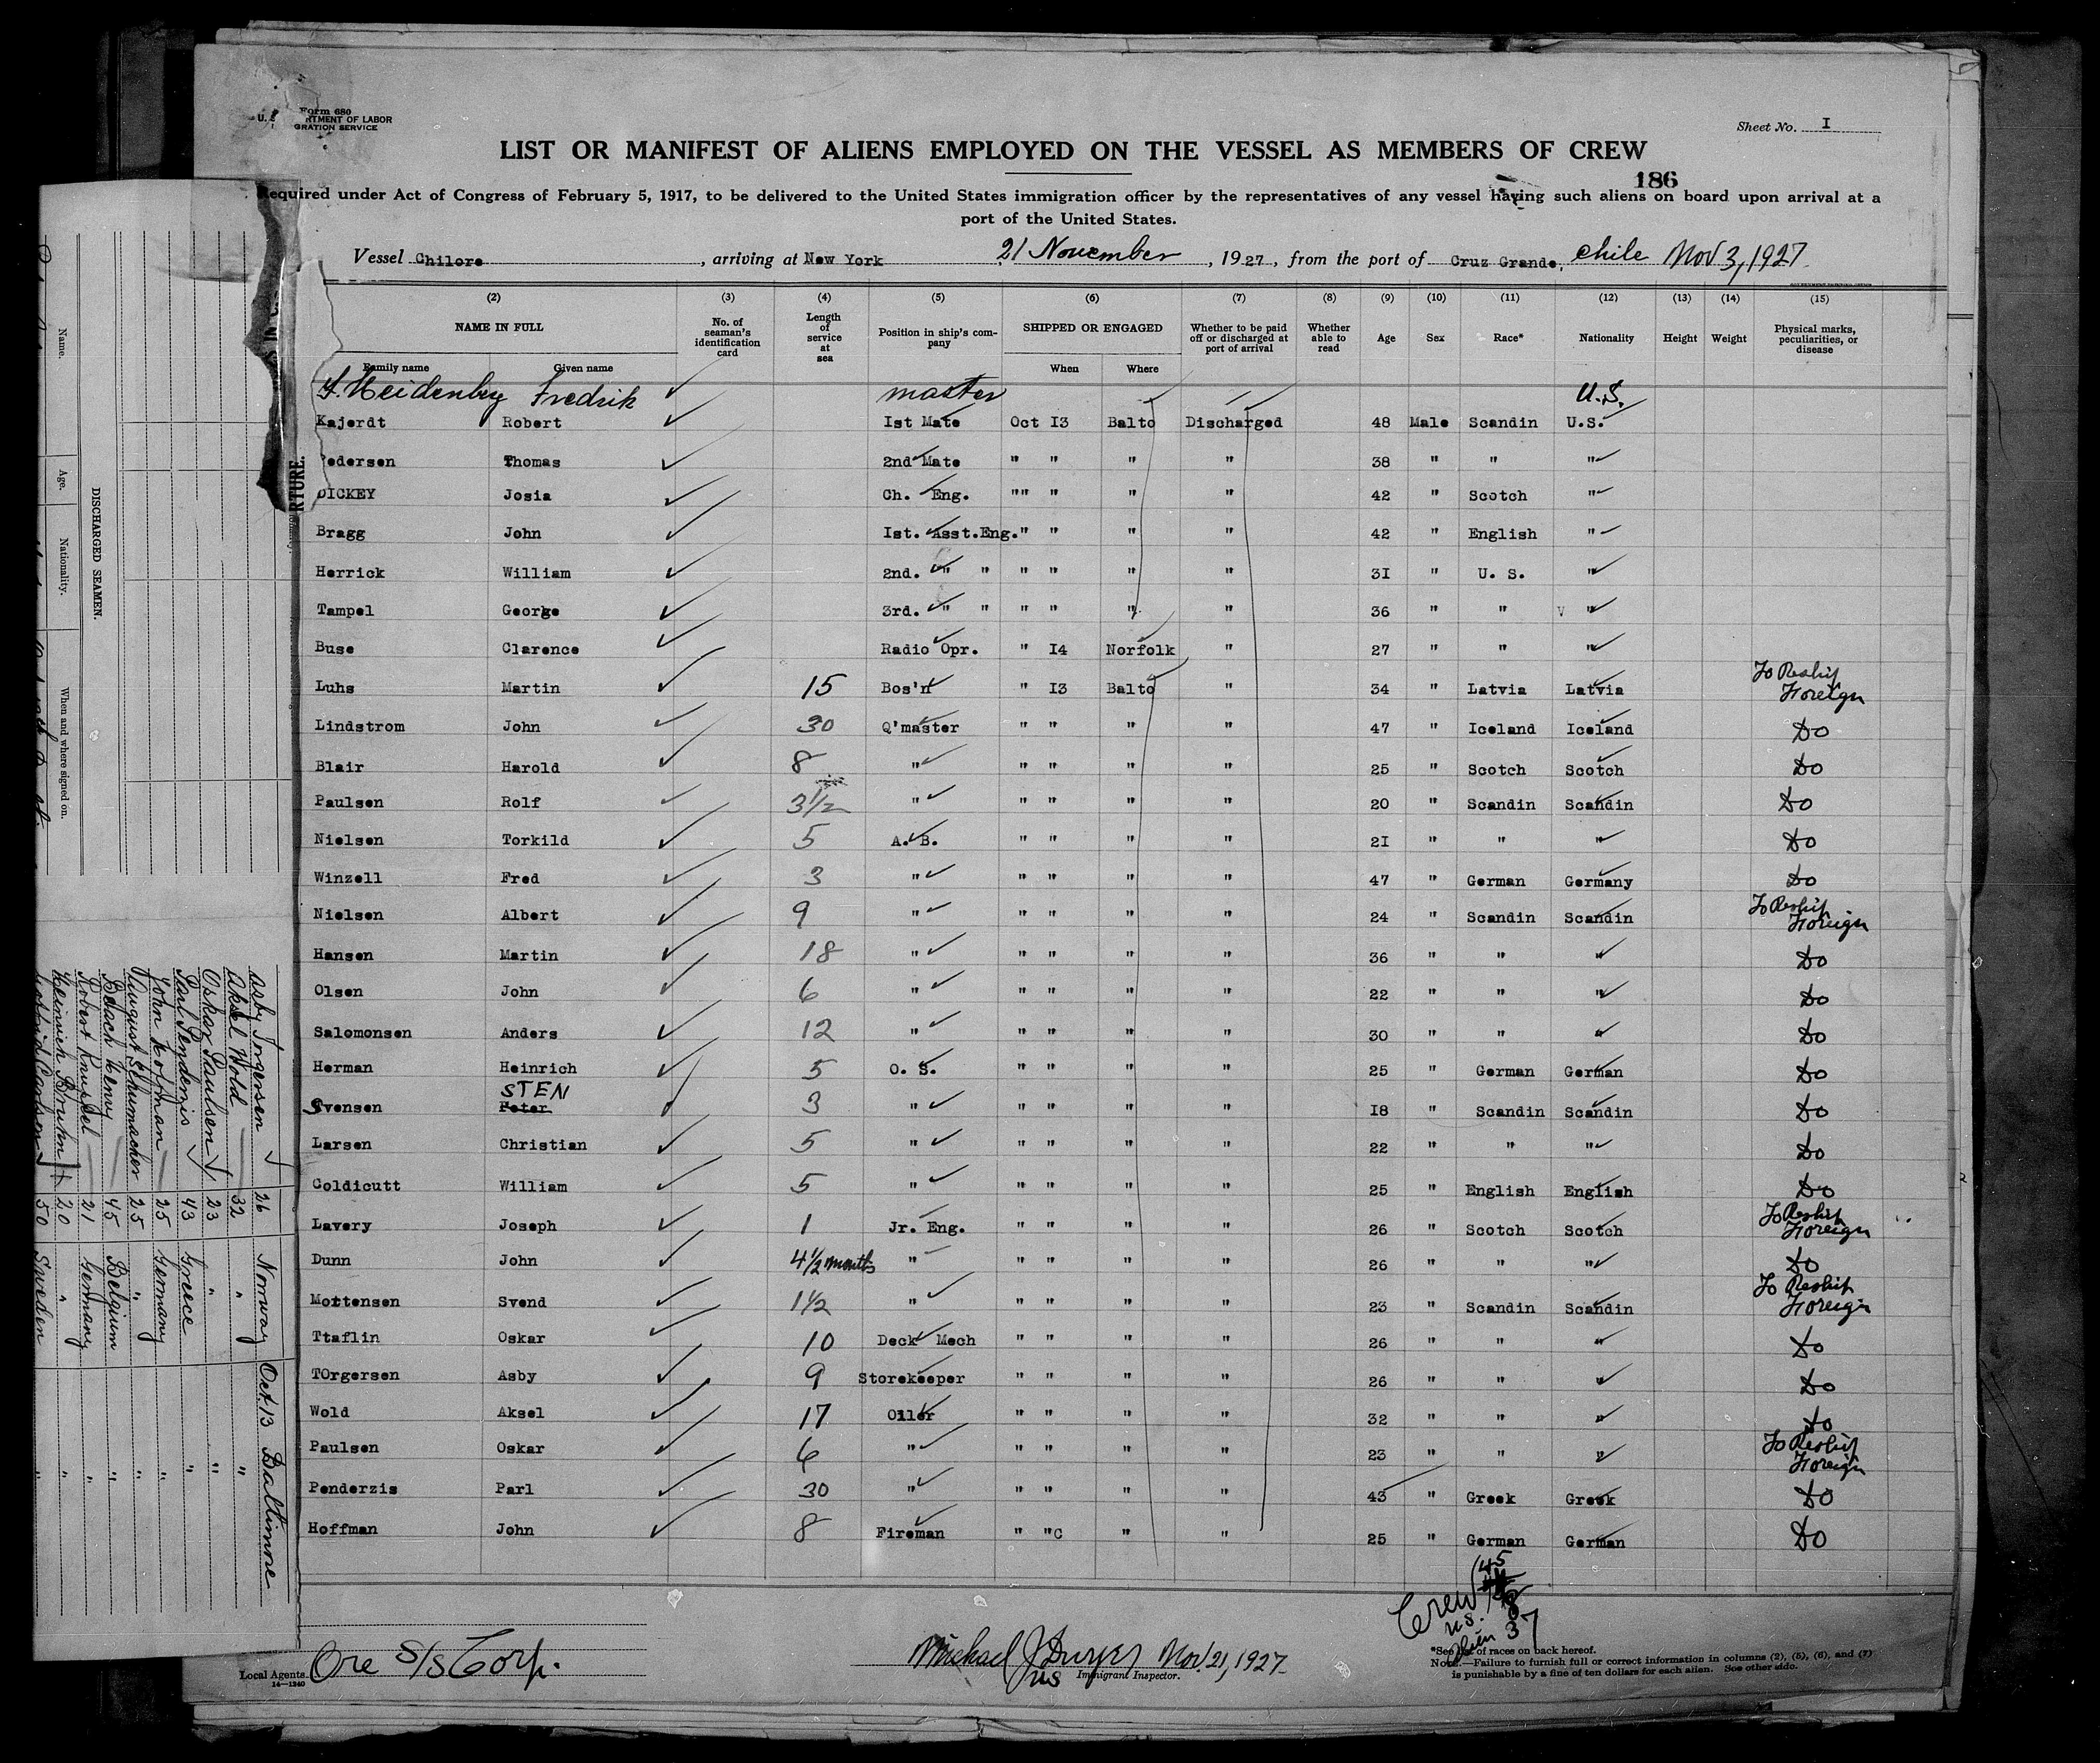 Form 680
RTMENT OF LABOR
GRATION SERVICE
Sheet No. I
LIST OR MANIFEST OF ALIENS EMPLOYED ON THE VESSEL AS MEMBERS OF CREW
186
Required under Act of Congress of February 5, 1917, to be delivered to the United States immigration officer by the representatives of any vessel having such aliens on board upon arrival at a
port of the United States.
Vessel Chilore, arriving at New York 21 November, 1927, from the port of Cruz Grande, Chile Nov 3, 1927
(2) (3) (4) (5) (6) (7) (8) (9) (10) (11) (12) (13) (14) (15)
NAME IN FULL Family name Given name No. of seaman's identification card Length of service at sea Position in ship's company SHIPPED OR ENGAGED When Where Whether to be paid off or discharged at port of arrival Whether able to read Age Sex Race* Nationality Height Weight Physical marks, peculiarities, or disease
Fredrik master U.S.
Kajerdt Robert Ist Mate Oct I3 Balto Discharged 48 Male Scandin U.S.
Pedersen Thomas 2nd Mate " " " " 38 " " "
DICKEY Josia Ch. Eng. "" " " " 42 " Scotch "
Bragg John Ist. Asst.Eng. " " " " 42 " English "
Herrick William 2nd. " " " " " " 3I " U. S. "
Tampel George 3rd. " " " " " " 36 " " V "
Buse Clarence Radio Opr. " I4 Norfolk " 27 " " "
Luhs Martin 15 Bos'n " I3 Balto " 34 " Latvia Latvia To Reship Foreign
Lindstrom John 30 Q'master " " " " 47 " Iceland Iceland Do
Blair Harold 8 " " " " " 25 " Scotch Scotch Do
Paulsen Rolf 3½ " " " " " 20 " Scandin Scandin Do
Nielsen Torkild 5 A. B. " " " " 2I " " " Do
Winzell Fred 3 " " " " " 47 " German Germany Do
Nielsen Albert 9 " " " " " 24 " Scandin Scandin To Reship Foreign
Hansen Martin 18 " " " " " 36 " " " Do
Olsen John 6 " " " " " 22 " " " Do
Salomonsen Anders 12 " " " " " 30 " " " Do
Herman Heinrich 5 O. S. " " " " 25 " German German Do
Svensen Peter STEN 3 " " " " " I8 " Scandin Scandin Do
Larsen Christian 5 " " " " " 22 " " " Do
Coldicutt William 5 " " " " " 25 " English English Do
Lavery Joseph 1 Jr. Eng. " " " " 26 " Scotch Scotch To Reship Foreign
Dunn John 4½ months " " " " " 26 " " " Do
Mortensen Svend 1½ " " " " " 23 " Scandin Scandin To Reship Foreign
Ttaflin Oskar 10 Deck Mech " " " " 26 " " " Do
TOrgersen Asby 9 Storekeeper " " " " 26 " " " Do
Wold Aksel 17 Oiler " " " " 32 " " " Do
Paulsen Oskar 6 " " " " " 23 " " " To Reship Foreign
Penderzis Parl 30 " " " " " 43 " Greek Greek Do
Hoffman John 8 Fireman " "C " " 25 " German German Do
Crew 45
U.S. 8
Alien 37
Local Agents. Ore S/S Corp.
14—1240
Michael J Dwyer Nov. 21, 1927
US Immigrant Inspector.
*See list of races on back hereof.
Note.—Failure to furnish full or correct information in columns (2), (5), (6), and (7)
is punishable by a fine of ten dollars for each alien. See other side.
RTURE.
DISCHARGED SEAMEN.
Name. Age. Nationality. When and where signed on.
Asby Torgersen 26 Norway Oct 13 Baltimore
Aksel Wold 32 " "
Oskar Paulsen 23 " "
Parl Penderzis 43 Greece "
John Hoffman 25 Germany "
August Schumacher 25 " "
Henry 45 Belgium "
Robert 21 Germany "
Heinrich Bruhn 20 " "
Carlson 50 Sweden "